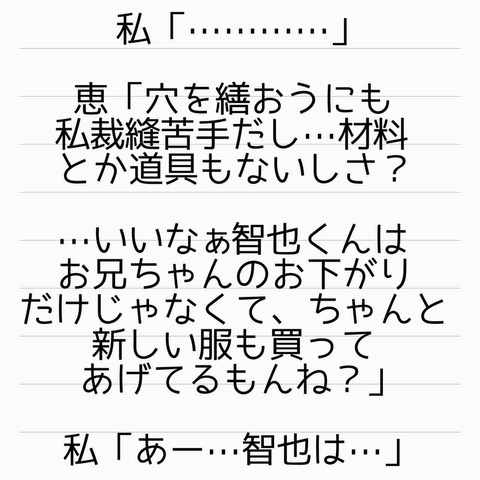 私「…………」
恵「穴を繕おうにも
私裁縫苦手だし…材料
とか道具もないしさ？
…いいなぁ智也くんは
お兄ちゃんのお下がり
だけじゃなくて、ちゃんと
新しい服も買って
あげてるもんね？」
私「あー…智也は…」